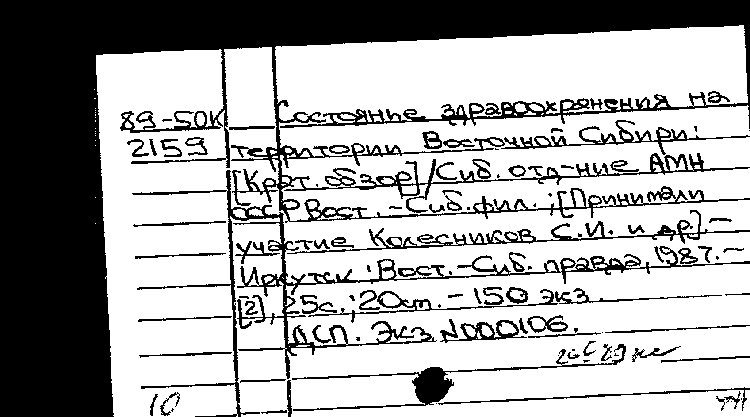 89-50К Состояние здравоохранения на
2159 территории Восточной Сибири:
[Крат. обзор]/Сиб. отд-ние АМН
СССР Вост.-Сиб.фил.;[Принимали
участие Колесников С.И. и др.].-
Иркутск:Вост.-Сиб. правда, 1987.-
[2], 25с.; 20см. - 150 экз.
ДСП. Экз N000106.
10